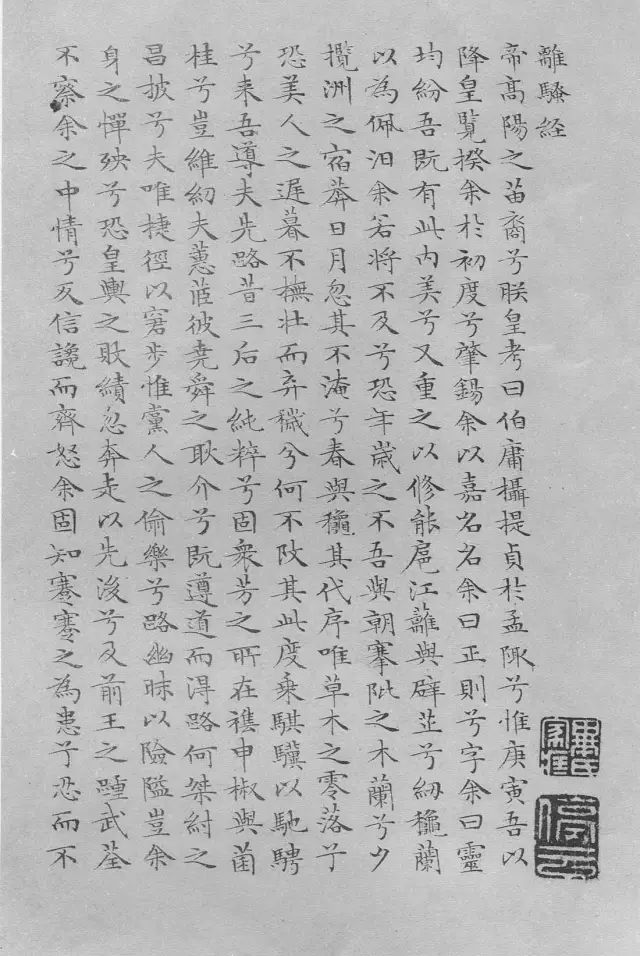 離騷経
帝髙陽之苗裔兮朕皇考曰伯庸攝提貞於孟陬兮惟庚寅吾以
降皇覽揆余於初度兮肇錫余以嘉名名余曰正則兮字余曰靈
均紛吾既有此内美兮又重之以修能扈江蘺與辟芷兮紉穐蘭
以為佩汨余若將不及兮恐年歲之不吾與朝搴阰之木蘭兮夕
攬洲之宿莽日月忽其不淹兮春與穐其代序唯草木之零落兮
恐美人之遲暮不撫壯而弃穢兮何不改其此度乘騏驥以馳騁
兮来吾導夫先路昔三后之純粹兮固衆芳之所在襍申椒與菌
桂兮豈維紉夫蕙茝彼堯舜之耿介兮既遵道而得路何桀紂之
昌披兮夫唯捷徑以窘步惟黨人之偷樂兮路幽昧以險隘豈余
身之憚殃兮恐皇輿之敗績忽奔走以先後兮及前王之踵武荃
不察余之中情兮反信讒而齊怒余固知謇謇之為患兮忍而不
停雲